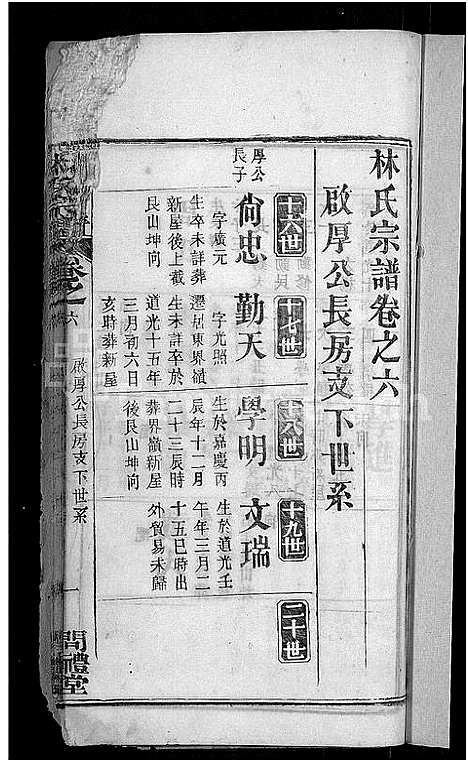 林氏宗譜卷之六
啟厚公長房支下世系
十六世
十七世
十八世
十九世
二十世
厚公
長子
尙忠
字廣元
生卒未詳葬
新屋後上截
艮山坤向
勤天
字光照
生未詳卒於
道光十五年
三月初六日
亥時葬新屋
學明
生於嘉慶丙
辰年十二月
二十三辰時
葬界嶺新屋
後艮山坤向
文瑞
生於道光壬
午年三月二
十五巳時出
外貿易未歸
卷之六
啟厚公長房支下世系
一
問禮堂